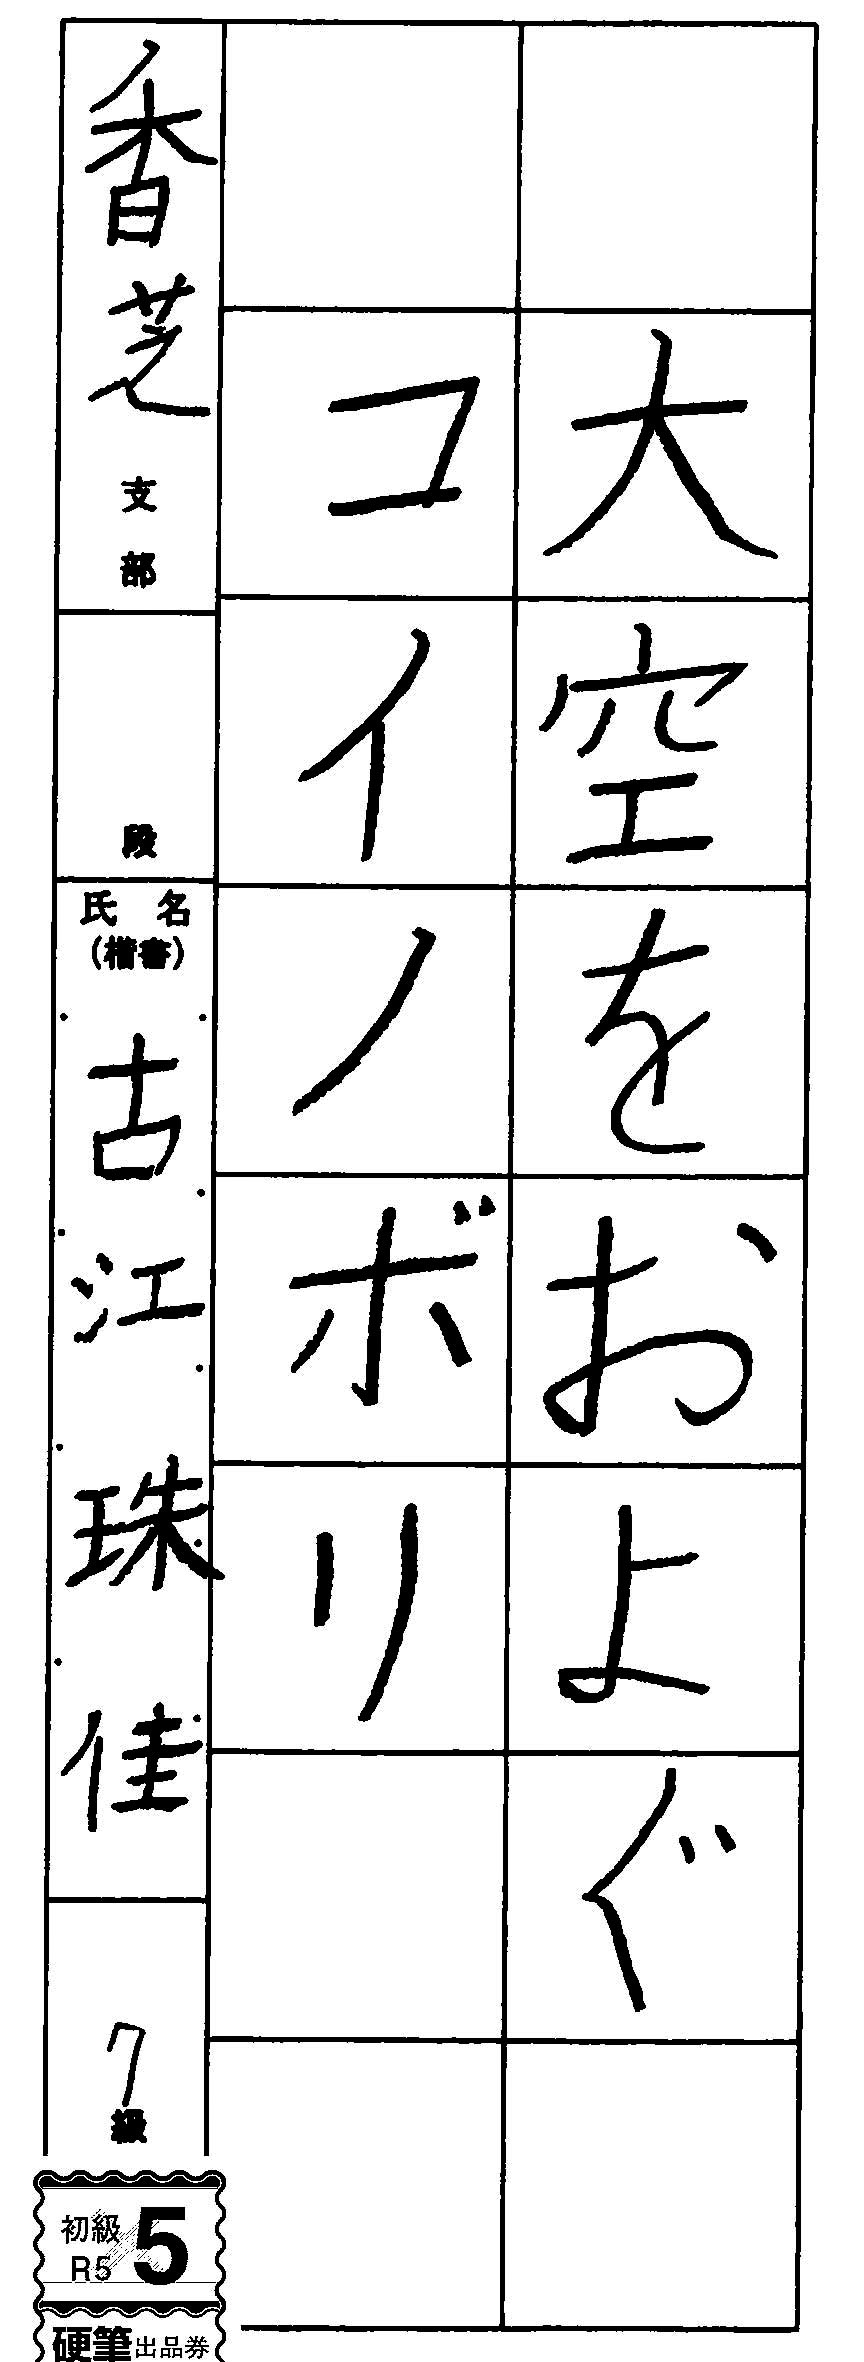 大空をおよぐ
コイノボリ
香芝支部
段
氏名
(楷書)
古江珠佳
7級
初級
R5
5
硬筆出品券